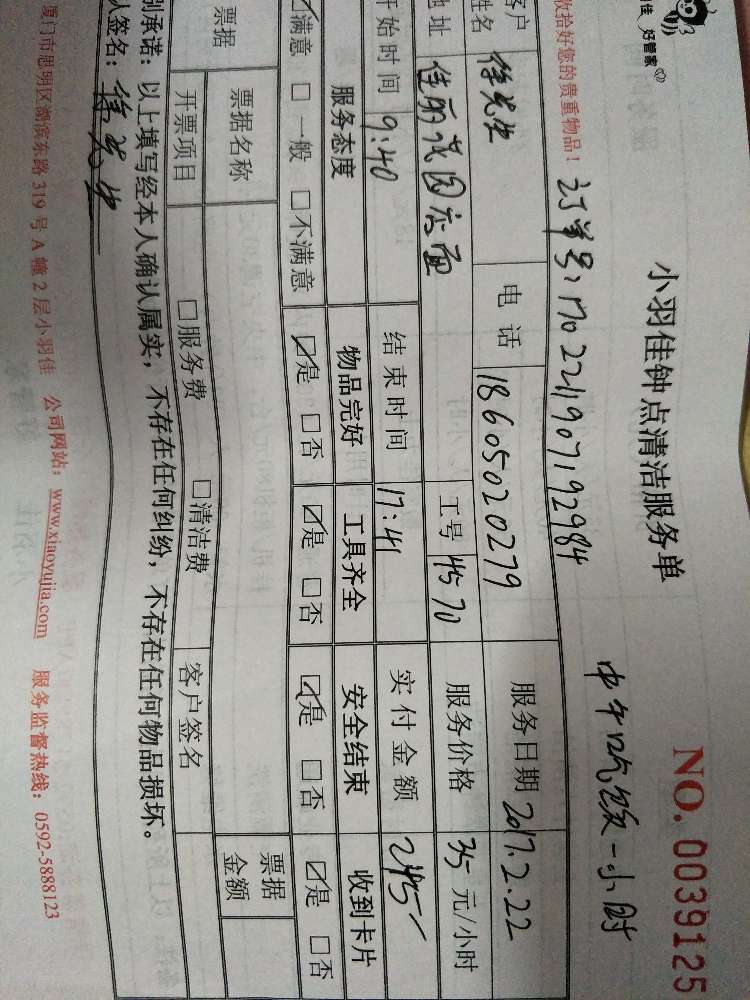 佳 好管家
小羽佳钟点清洁服务单
NO. 0039125
收拾好您的贵重物品！
订单号:1702211907192984
中午吃饭一小时
客户姓名 徐先生 电话 18605020279 服务日期 2017.2.22
地址 佳丽花园店面 工号 4570 服务价格 35 元/小时
开始时间 9:40 结束时间 17:41 实付金额 245
服务态度 物品完好 工具齐全 安全结束 收到卡片
☑满意 □一般 □不满意 ☑是 □否 ☑是 □否 ☑是 □否 ☑是 □否
票据 票据名称 票据金额
开票项目 □服务费 □清洁费 客户签名
别承诺：以上填写经本人确认属实，不存在任何纠纷，不存在任何物品损坏。
人签名：徐先生
厦门市思明区湖滨东路 319 号 A 幢 2 层小羽佳 公司网站：www.xiaoyujia.com 服务监督热线：0592-5888123